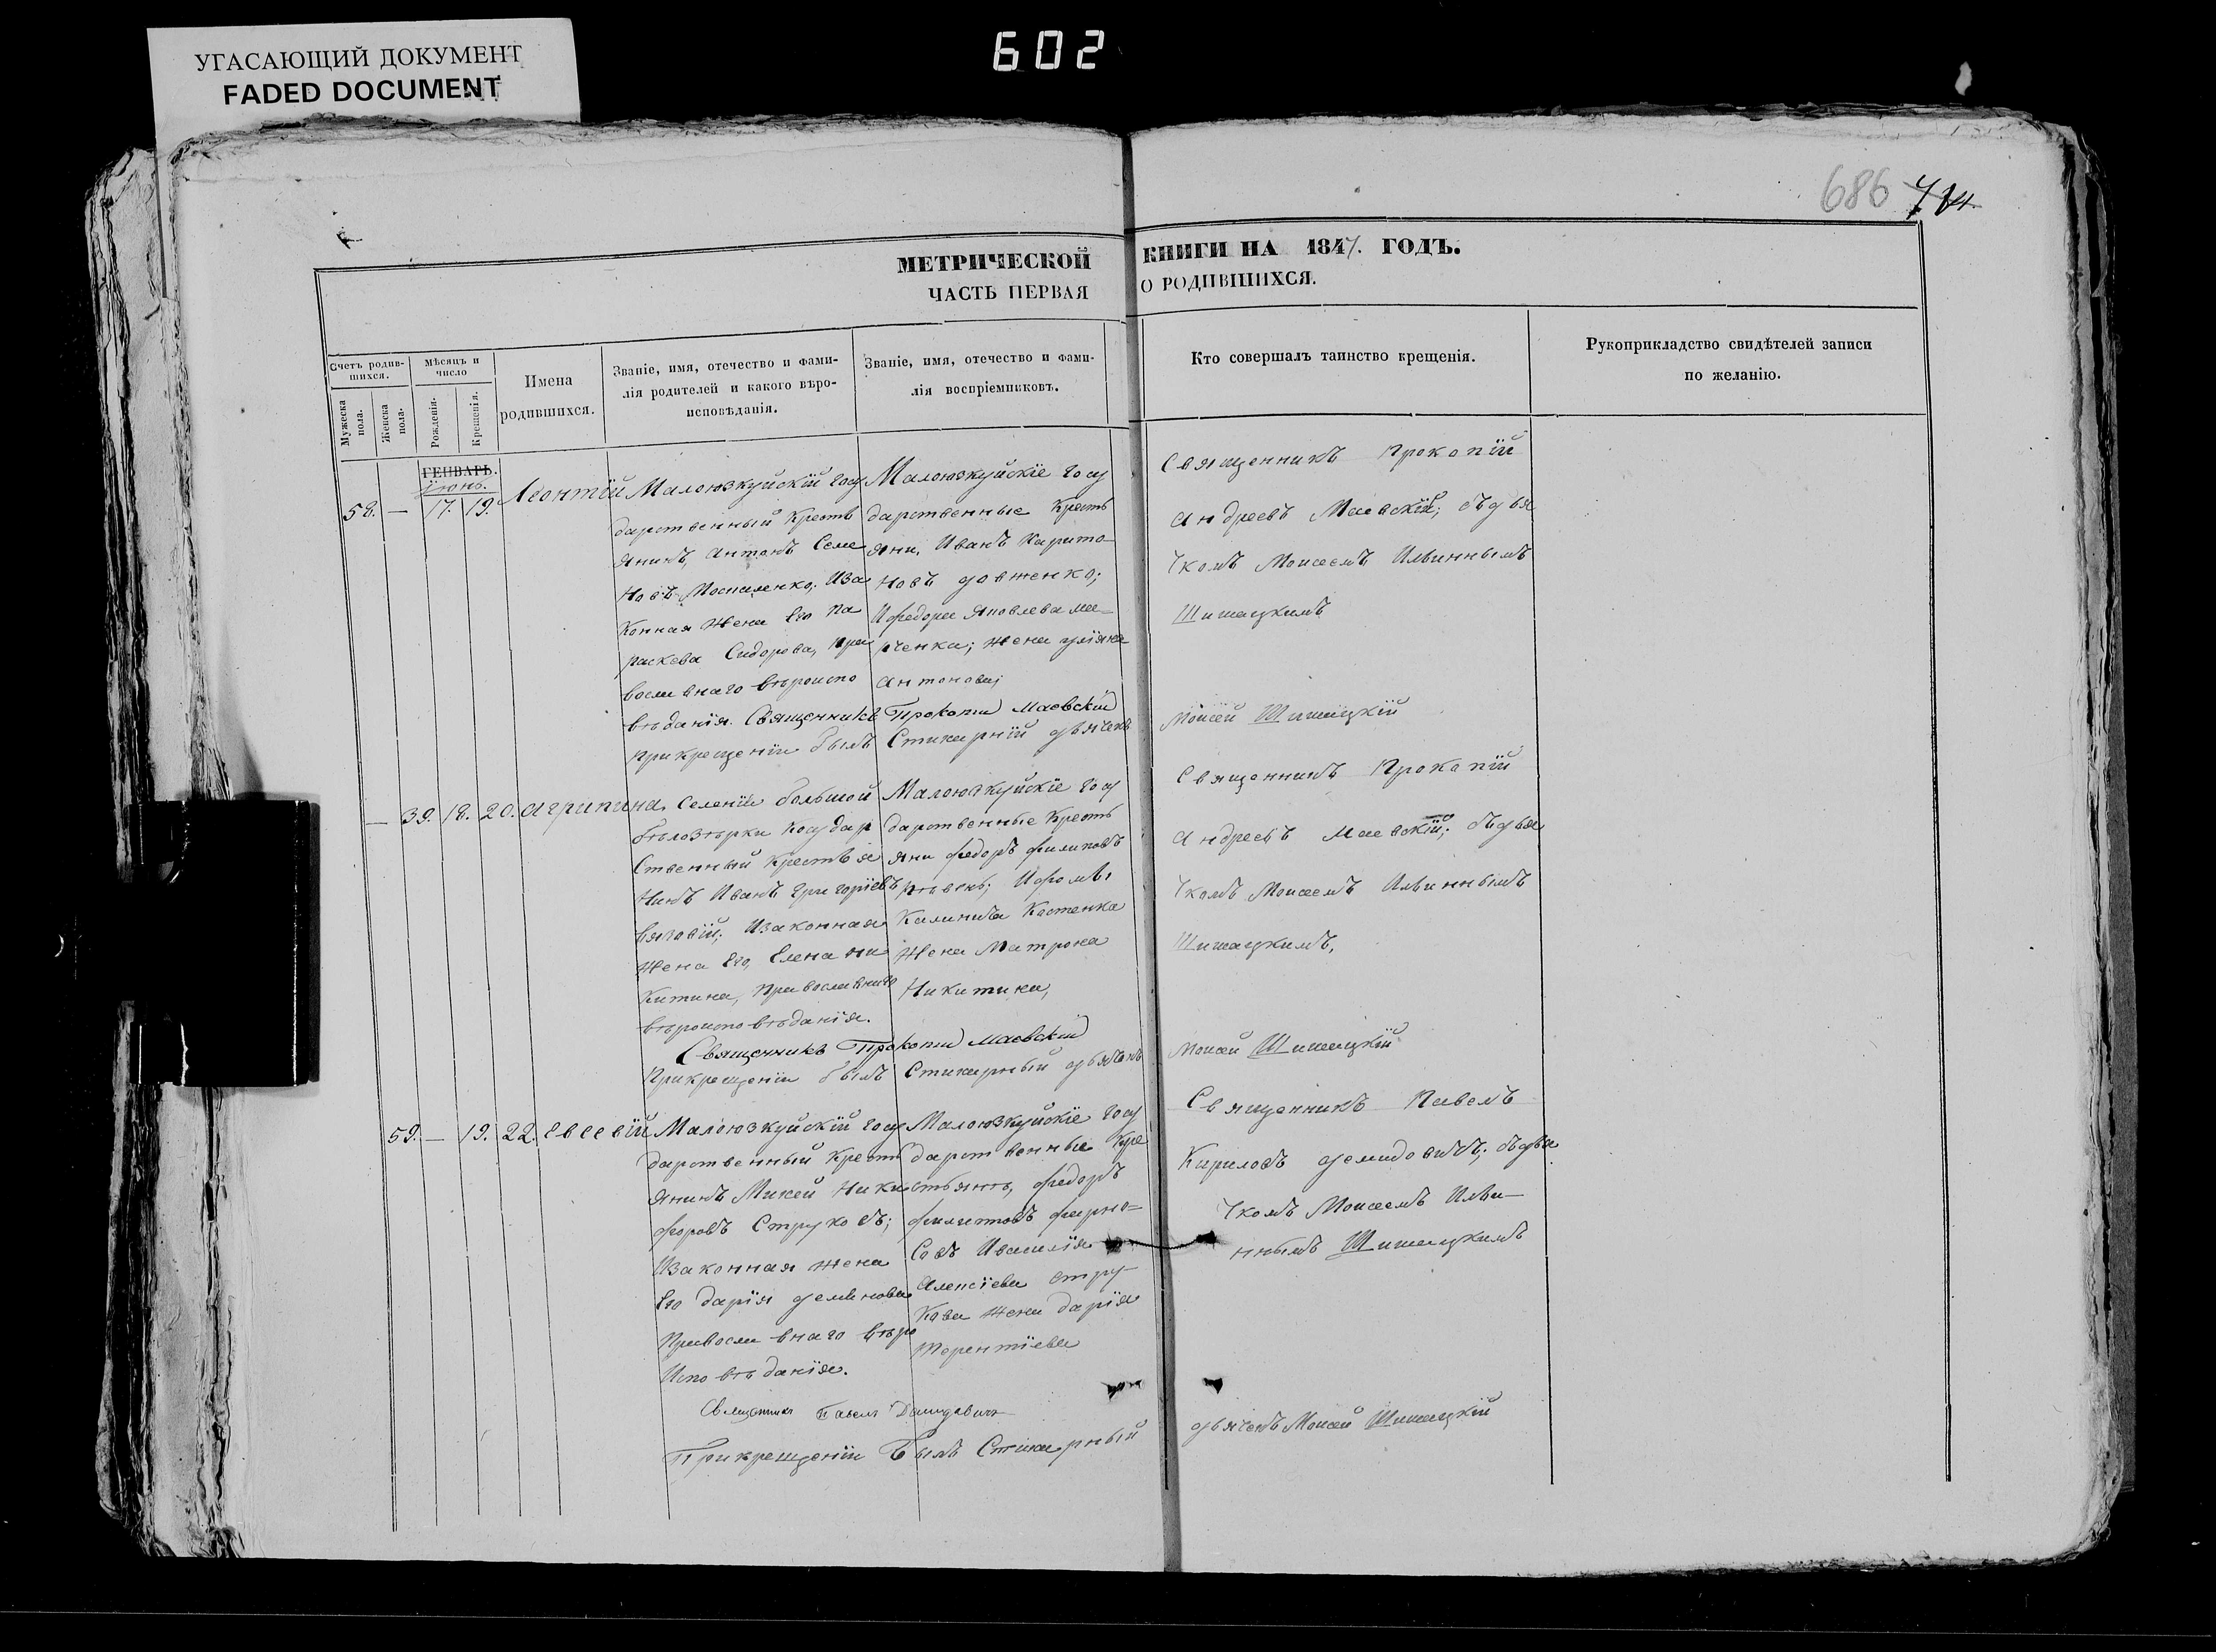 УГАСАЮЩИЙ ДОКУМЕНТ
FADED DOCUMENT
602
686
МЕТРИЧЕСКОЙ КНИГИ НА 1847. ГОДЪ.
ЧАСТЬ ПЕРВАЯ О РОДИВШИХСЯ.
Счетъ родив-
шихся.
Мужеска
пола.
Женска
пола.
Мѣсяцъ и
число
Рожденія.
Крещенія.
Имена
родившихся.
Званіе, имя, отечество и фами-
лія родителей и какого вѣро-
исповѣданія.
Званіе, имя, отечество и фами-
лія воспріемниковъ.
Кто совершалъ таинство крещенія.
Рукоприкладство свидѣтелей записи
по желанію.
ГЕНВАРЬ.
Іюнь.
58. — 17. 19. Леонтій
Малоюзкуйскій госу
дарственный Кресть
янинъ, Антонъ Семе
новъ Мосиленко; Иза
конная жена Его Па
раскева Сидорова, пра
вославнаго вѣроиспо
вѣданія. Священникъ Прокопій Маевскій
При крещеніи былъ Стихарный дьячекъ
Малоюзкуйскіе госу
дарственные Кресть
яни, Иванъ Харито-
новъ довженко;
И федора Яковлева ма-
рченка; жена уліяна
Антонова;
Священникъ Прокопій
Андреевъ Маевскій; съ дья
чкомъ Моисеемъ Ильиннымъ
Шишацкимъ
Моисей Шишацкій
— 39. 18. 20. Агрипина.
Селенія большой
бѣлозѣрки Государ
ственный крестья
нинъ Иванъ Григоріевъ
Изаконная
жена Его, Елена ни
китина, Православнаго
вѣроисповѣданія.
Священникъ Прокопій Маевскій
При крещеніи былъ Стихарный дьячекъ
Малоюзкуйскіе госу
дарственные Кресть
яни федоръ филиповъ
Ифомы
Калинича Костенка
жена Матрона
Никитина,
Священникъ Прокопій
Андреевъ Маевскій; съ дья
чкомъ Моисеемъ Ильиннымъ
Шишацкимъ,
Моисей Шишацкій
59. — 19. 22. Евсевій
Малоюзкуйскій госу
дарственный Кресть
янинъ Михей Ники
форовъ Струковъ;
Изаконная жена
Его дарія
Православнаго вѣро
Исповѣданія.
Священникъ Павелъ Демидовичъ
При крещеніи былъ Стихарный
Малоюзкуйскіе госу
дарственные Кре
стьянѣ, федоръ
филиповъ фирно-
совъ Ивасилія
Алексіева стру-
кова жена дарія
терентіева
Священникъ Павелъ
Кириловъ демидовичъ; съ дья
чкомъ Моисеемъ Ильи-
ннымъ Шишацкимъ
дьячекъ Моисей Шишацкій